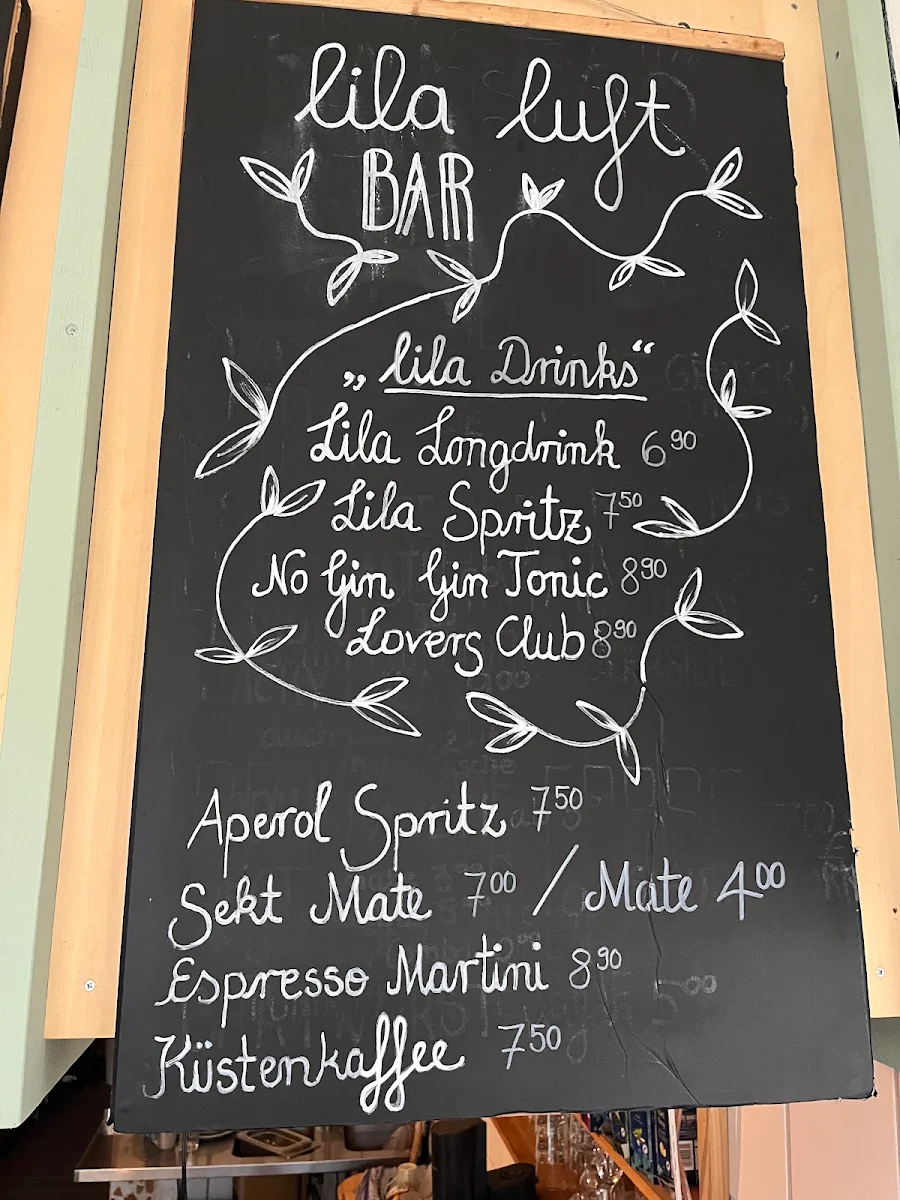 lila luft
BAR
„lila Drinks“
Lila Longdrink 6⁹⁰
Lila Spritz 7⁵⁰
No Gin Gin Tonic 8⁹⁰
Lovers Club 8⁹⁰
Aperol Spritz 7⁵⁰
Sekt Mate 7⁰⁰ / Mate 4⁰⁰
Espresso Martini 8⁹⁰
Küstenkaffee 7⁵⁰